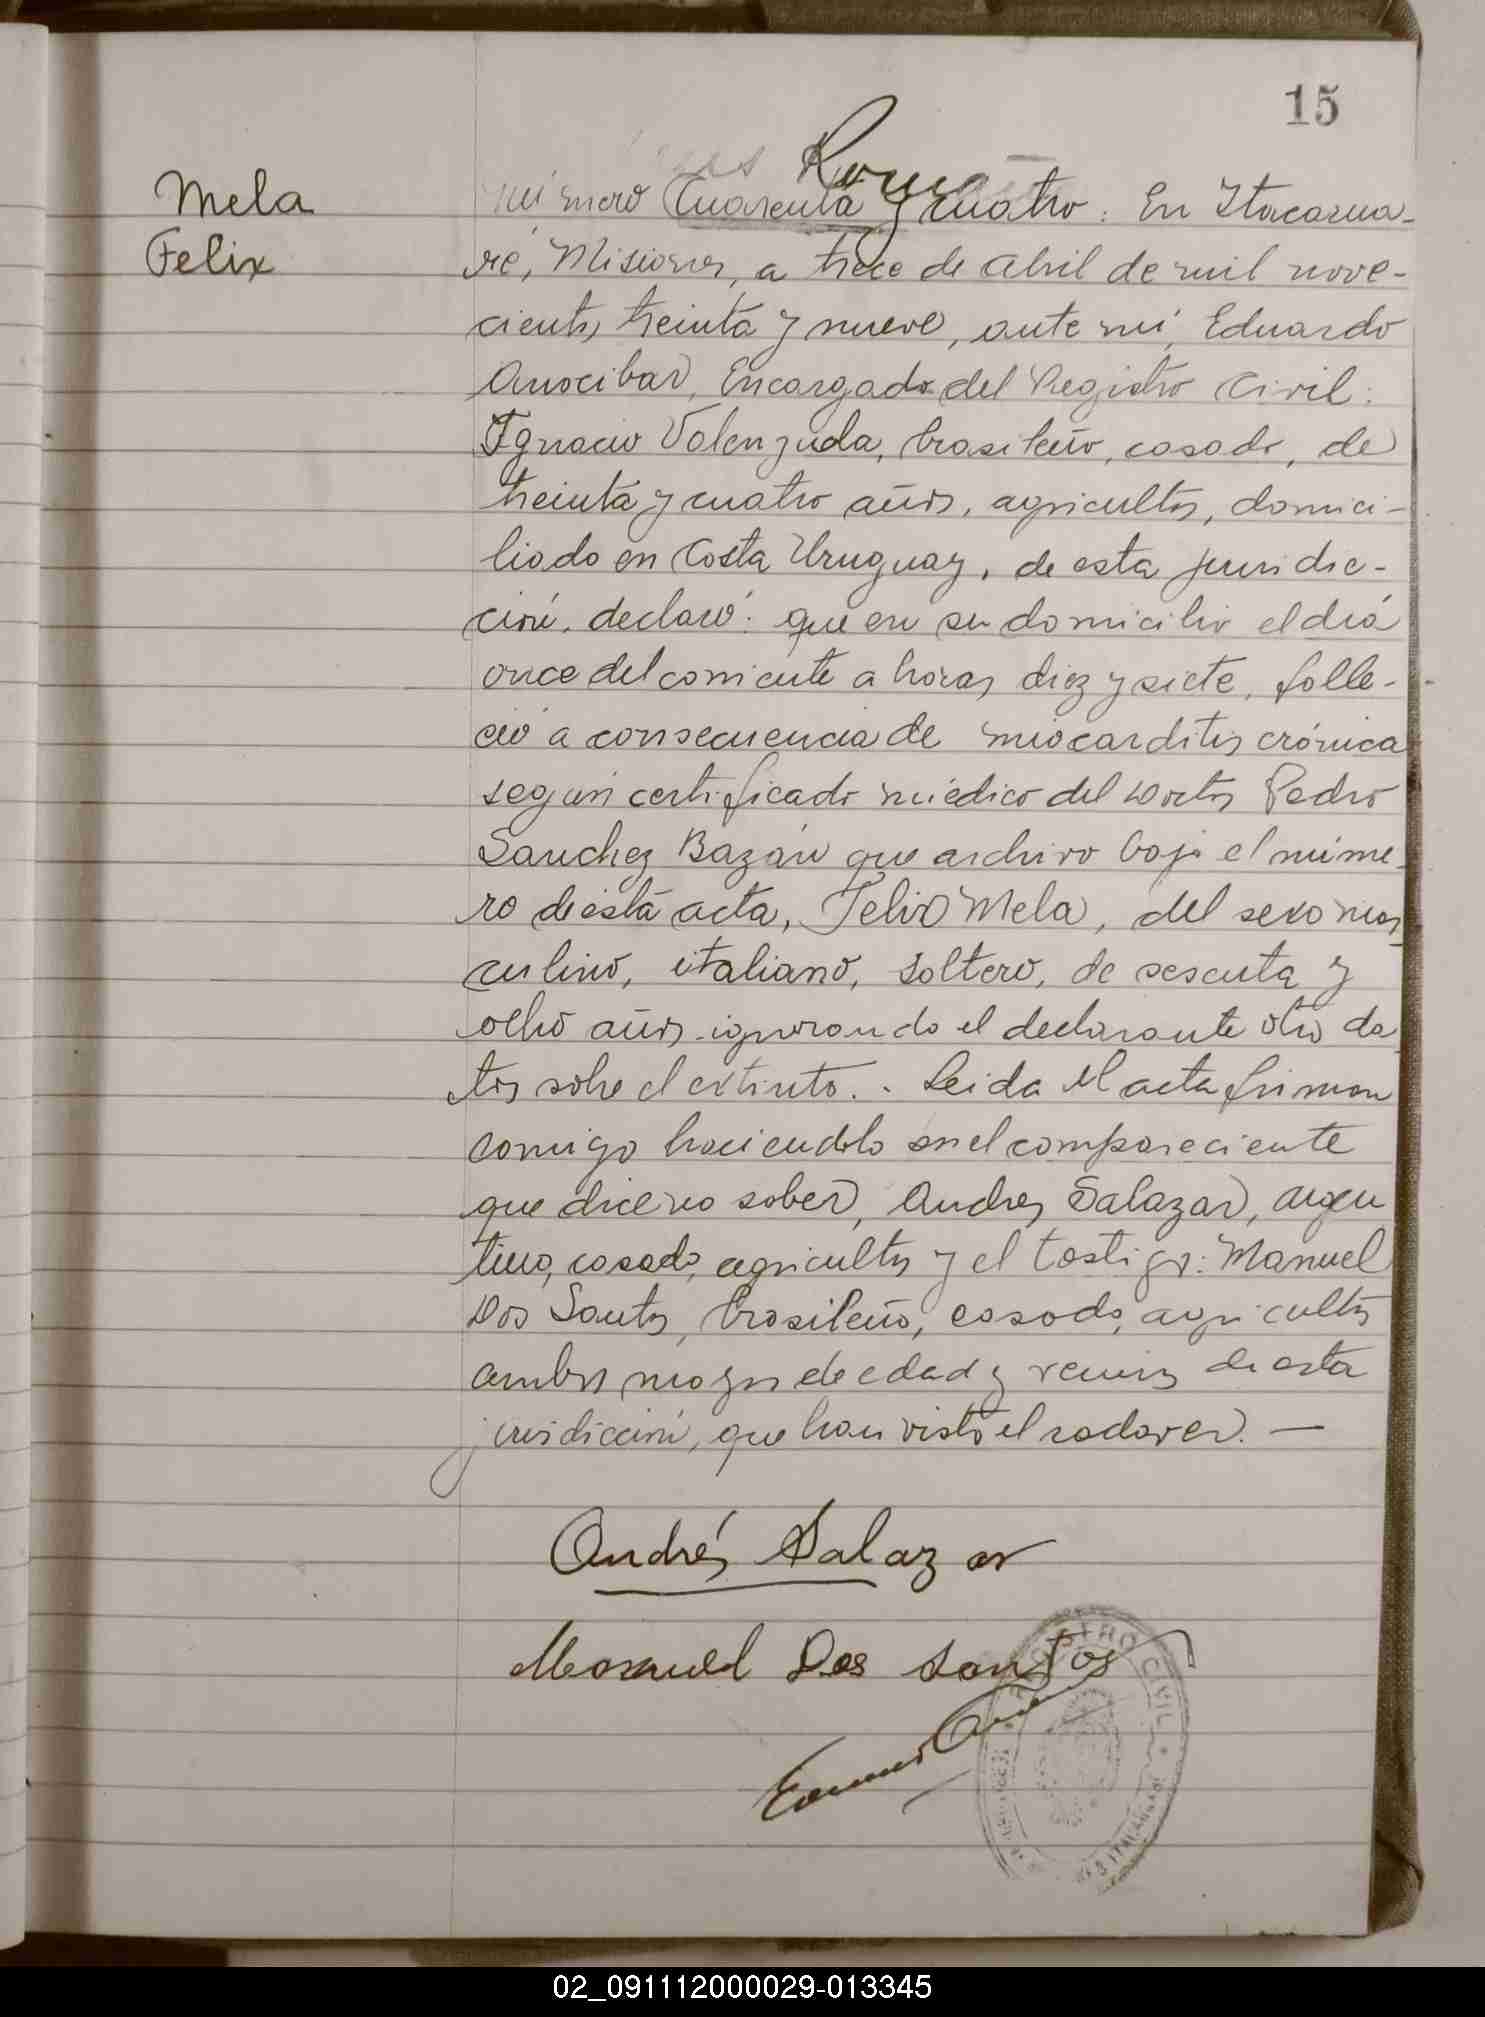 15
Mela
Felix
número Cuarenta y cuatro: En Itacarua-
ré, Misiones, a trece de Abril de mil nove-
cientos treinta y nueve, ante mí, Eduardo
Arocibar, Encargado del Registro Civil:
Ignacio Valenzuela, brasileño, casado, de
treinta y cuatro años, agricultor, domici-
liado en Costa Uruguay, de esta jurisdic-
ción, declaró: que en su domicilio el día
once del corriente a horas diez y siete, falle-
ció a consecuencia de miocarditis crónica
según certificado médico del Doctor Pedro
Sanchez Bazán que archivo bajo el núme-
ro de esta acta, Felix Mela, del sexo mas
culino, italiano, soltero, de sesenta y
ocho años ignorando el declarante otro da
tos sobre el extinto. . Leida el acta firman
comigo haciendolo en el compareciente
que dice no saber, Andres Salazar, argen
tino, casado, agricultor y el testigo: Manuel
Dos Santos, brasileño, casado, agricultor
ambos mayores de edad y vecinos de esta
jurisdicción, que han visto el cadaver. —
Andrés Salazar
Manuel Dos Santos
REGISTRO CIVIL
02_091112000029-013345